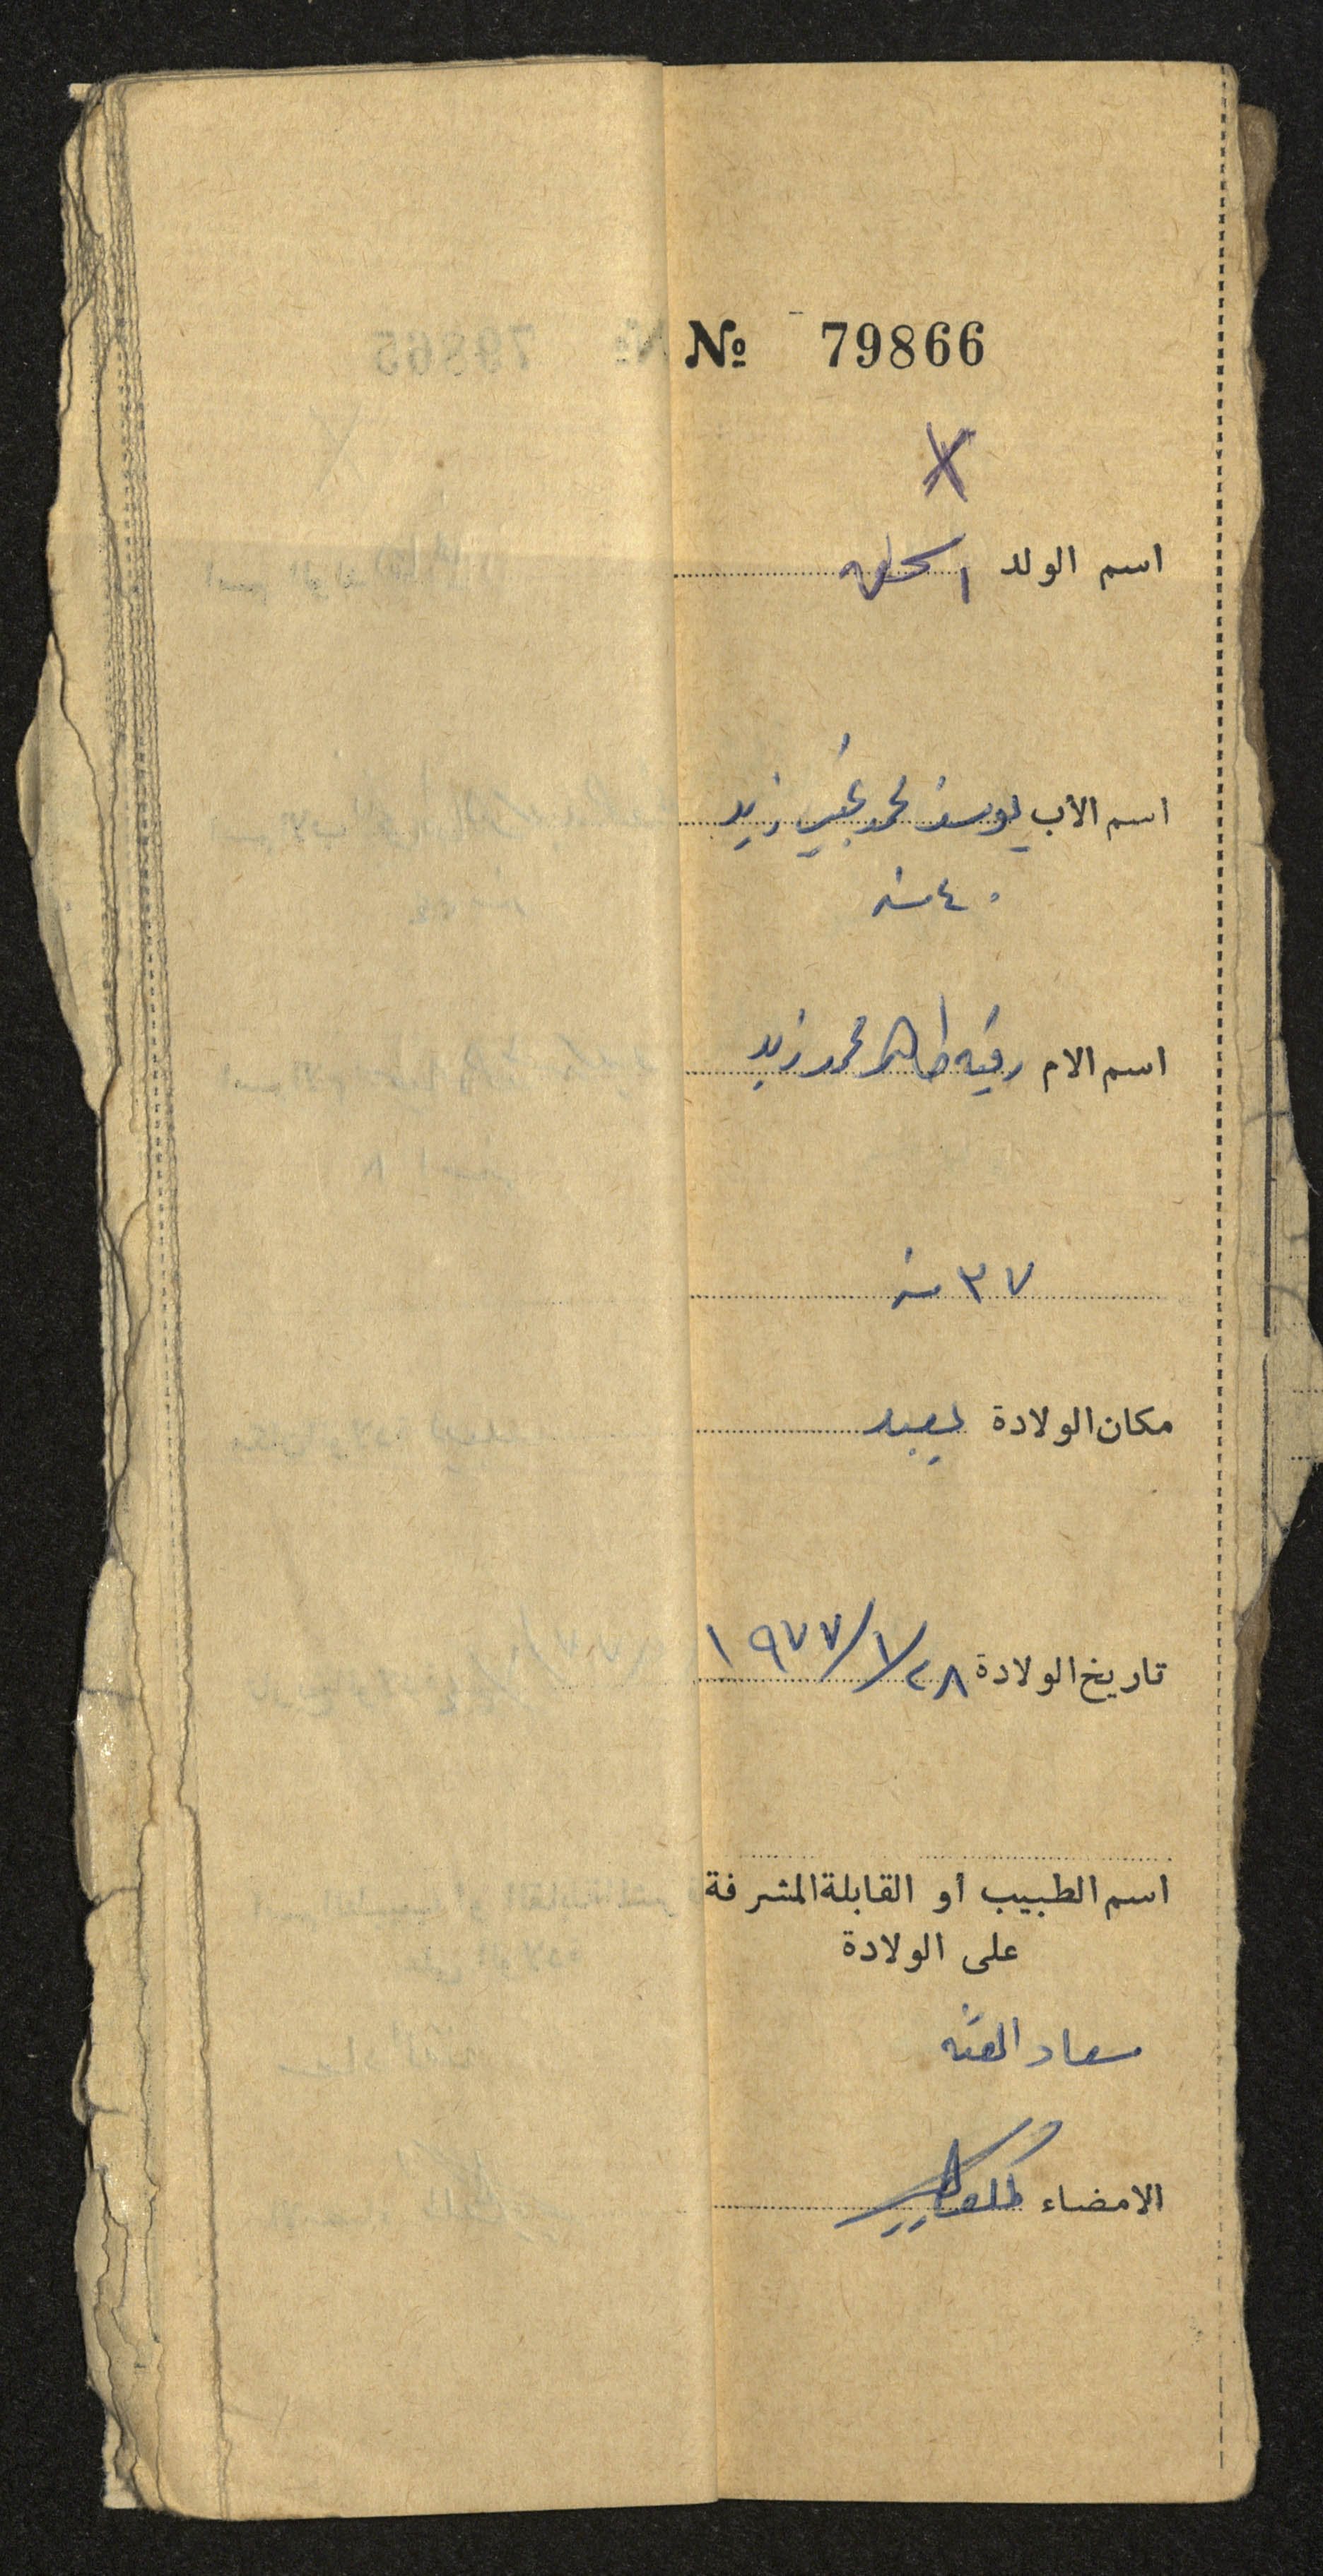 № 79866
X
اسم الولد
اسم الأب يوسف محمد نجيب زيد
٤٠ سنه
اسم الام رقيه طاهر محمد زيد
٣٧ سنه
مكان الولادة يعبد
تاريخ الولادة ٢٨/١/١٩٧٧
اسم الطبيب او القابلة المشرفة
على الولادة
سعاد
الامضاء